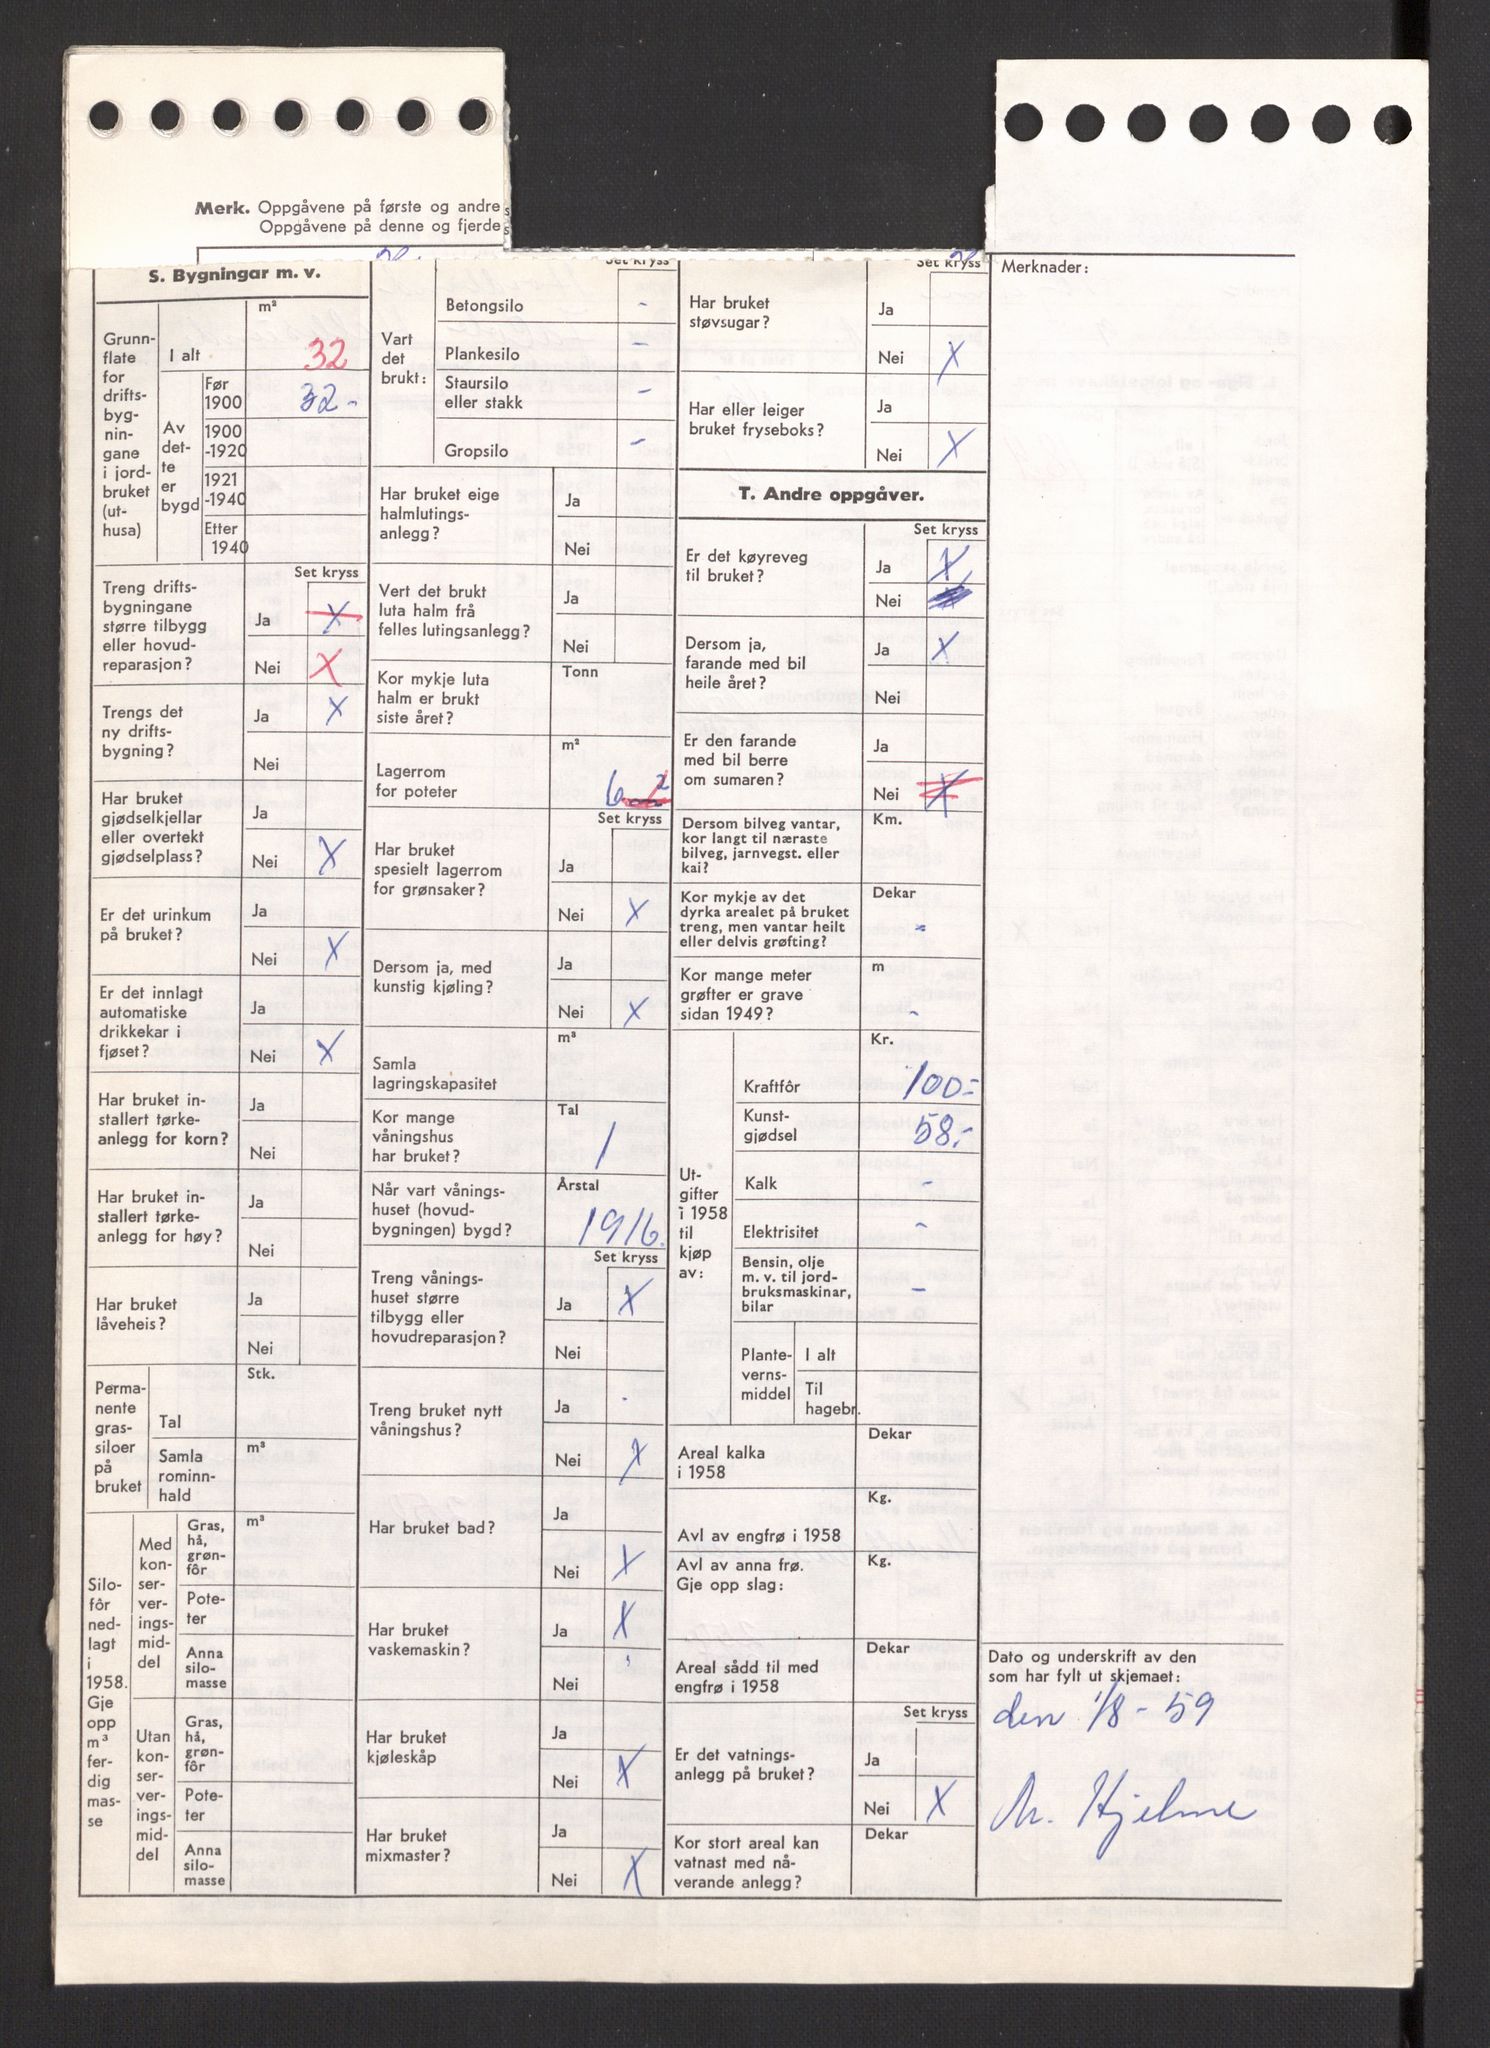 Merk. Oppgåvene på første og andre
Oppgåvene på denne og fjerde
S. Bygningar m. v.
Grunn-
flate
for
drifts-
byg-
nin-
gane
i jord-
bruket
(ut-
husa)
m²
I alt 32
Av
det-
te
er
bygd
Før
1900 32 -
1900
-1920
1921
-1940
Etter
1940
Set kryss
Treng drifts-
bygningane
større tilbygg
eller hovud-
reparasjon?
Ja X
Nei X
Trengs det
ny drifts-
bygning?
Ja X
Nei
Har bruket
gjødselkjellar
eller overtekt
gjødselplass?
Ja
Nei X
Er det urinkum
på bruket?
Ja
Nei X
Er det innlagt
automatiske
drikkekar i
fjøset?
Ja
Nei X
Har bruket in-
stallert tørke-
anlegg for korn?
Ja
Nei
Har bruket in-
stallert tørke-
anlegg for høy?
Ja
Nei
Har bruket
låveheis?
Ja
Nei
Perma-
nente
gras-
siloer
på
bruket
Stk.
Tal
m³
Samla
rominn-
hald
Silo-
fôr
ned-
lagt
i
1958.
Gje
opp
m³
fer-
dig
mas-
se
Med
kon-
ser-
ver-
ings-
mid-
del
m³
Gras,
hå,
grøn-
fôr
Pote-
ter
Anna
silo-
masse
Utan
kon-
ser-
ver-
ings-
mid-
del
Gras,
hå,
grøn-
fôr
Pote-
ter
Anna
silo-
masse
Set kryss
Vart
det
brukt:
Betongsilo -
Plankesilo -
Staursilo
eller stakk -
Gropsilo -
Har bruket eige
halmlutings-
anlegg?
Ja
Nei
Vert det brukt
luta halm frå
felles lutingsanlegg?
Ja
Nei
Kor mykje luta
halm er brukt
siste året?
Tonn
Lagerrom
for poteter
m²
6
Set kryss
Har bruket
spesielt lagerrom
for grønsaker?
Ja
Nei X
Dersom ja, med
kunstig kjøling?
Ja
Nei X
Samla
lagringskapasitet
m³
Kor mange
våningshus
har bruket?
Tal
1
Når vart vånings-
huset (hovud-
bygningen) bygd?
Årstal
1916.
Set kryss
Treng vånings-
huset større
tilbygg eller
hovudreparasjon?
Ja X
Nei
Treng bruket nytt
våningshus?
Ja
Nei X
Har bruket bad?
Ja
Nei X
Har bruket
vaskemaskin?
Ja X
Nei
Har bruket
kjøleskåp
Ja
Nei X
Har bruket
mixmaster?
Ja
Nei X
Set kryss
Har bruket
støvsugar?
Ja
Nei X
Har eller leiger
bruket fryseboks?
Ja
Nei X
T. Andre oppgåver.
Set kryss
Er det køyreveg
til bruket?
Ja X
Nei
Dersom ja,
farande med bil
heile året?
Ja X
Nei
Er den farande
med bil berre
om sumaren?
Ja
Nei X
Dersom bilveg vantar,
kor langt til næraste
bilveg, jarnvegst. eller
kai?
Km.
Kor mykje av det
dyrka arealet på bruket
treng, men vantar heilt
eller delvis grøfting?
Dekar
-
Kor mange meter
grøfter er grave
sidan 1949?
m
-
Ut-
gifter
i 1958
til
kjøp
av:
Kr.
Kraftfôr 100:-
Kunst-
gjødsel 58:-
Kalk -
Elektrisitet -
Bensin, olje
m. v. til jord-
bruksmaskinar,
bilar -
Plante-
verns-
middel
I alt
Til
hagebr.
Areal kalka
i 1958
Dekar
Avl av engfrø i 1958
Kg.
Avl av anna frø.
Gje opp slag:
Kg.
Areal sådd til med
engfrø i 1958
Dekar
Set kryss
Er det vatnings-
anlegg på bruket?
Ja
Nei X
Kor stort areal kan
vatnast med nå-
verande anlegg?
Dekar
Merknader:
Dato og underskrift av den
som har fylt ut skjemaet:
den 1/8 - 59
M. Hjelme